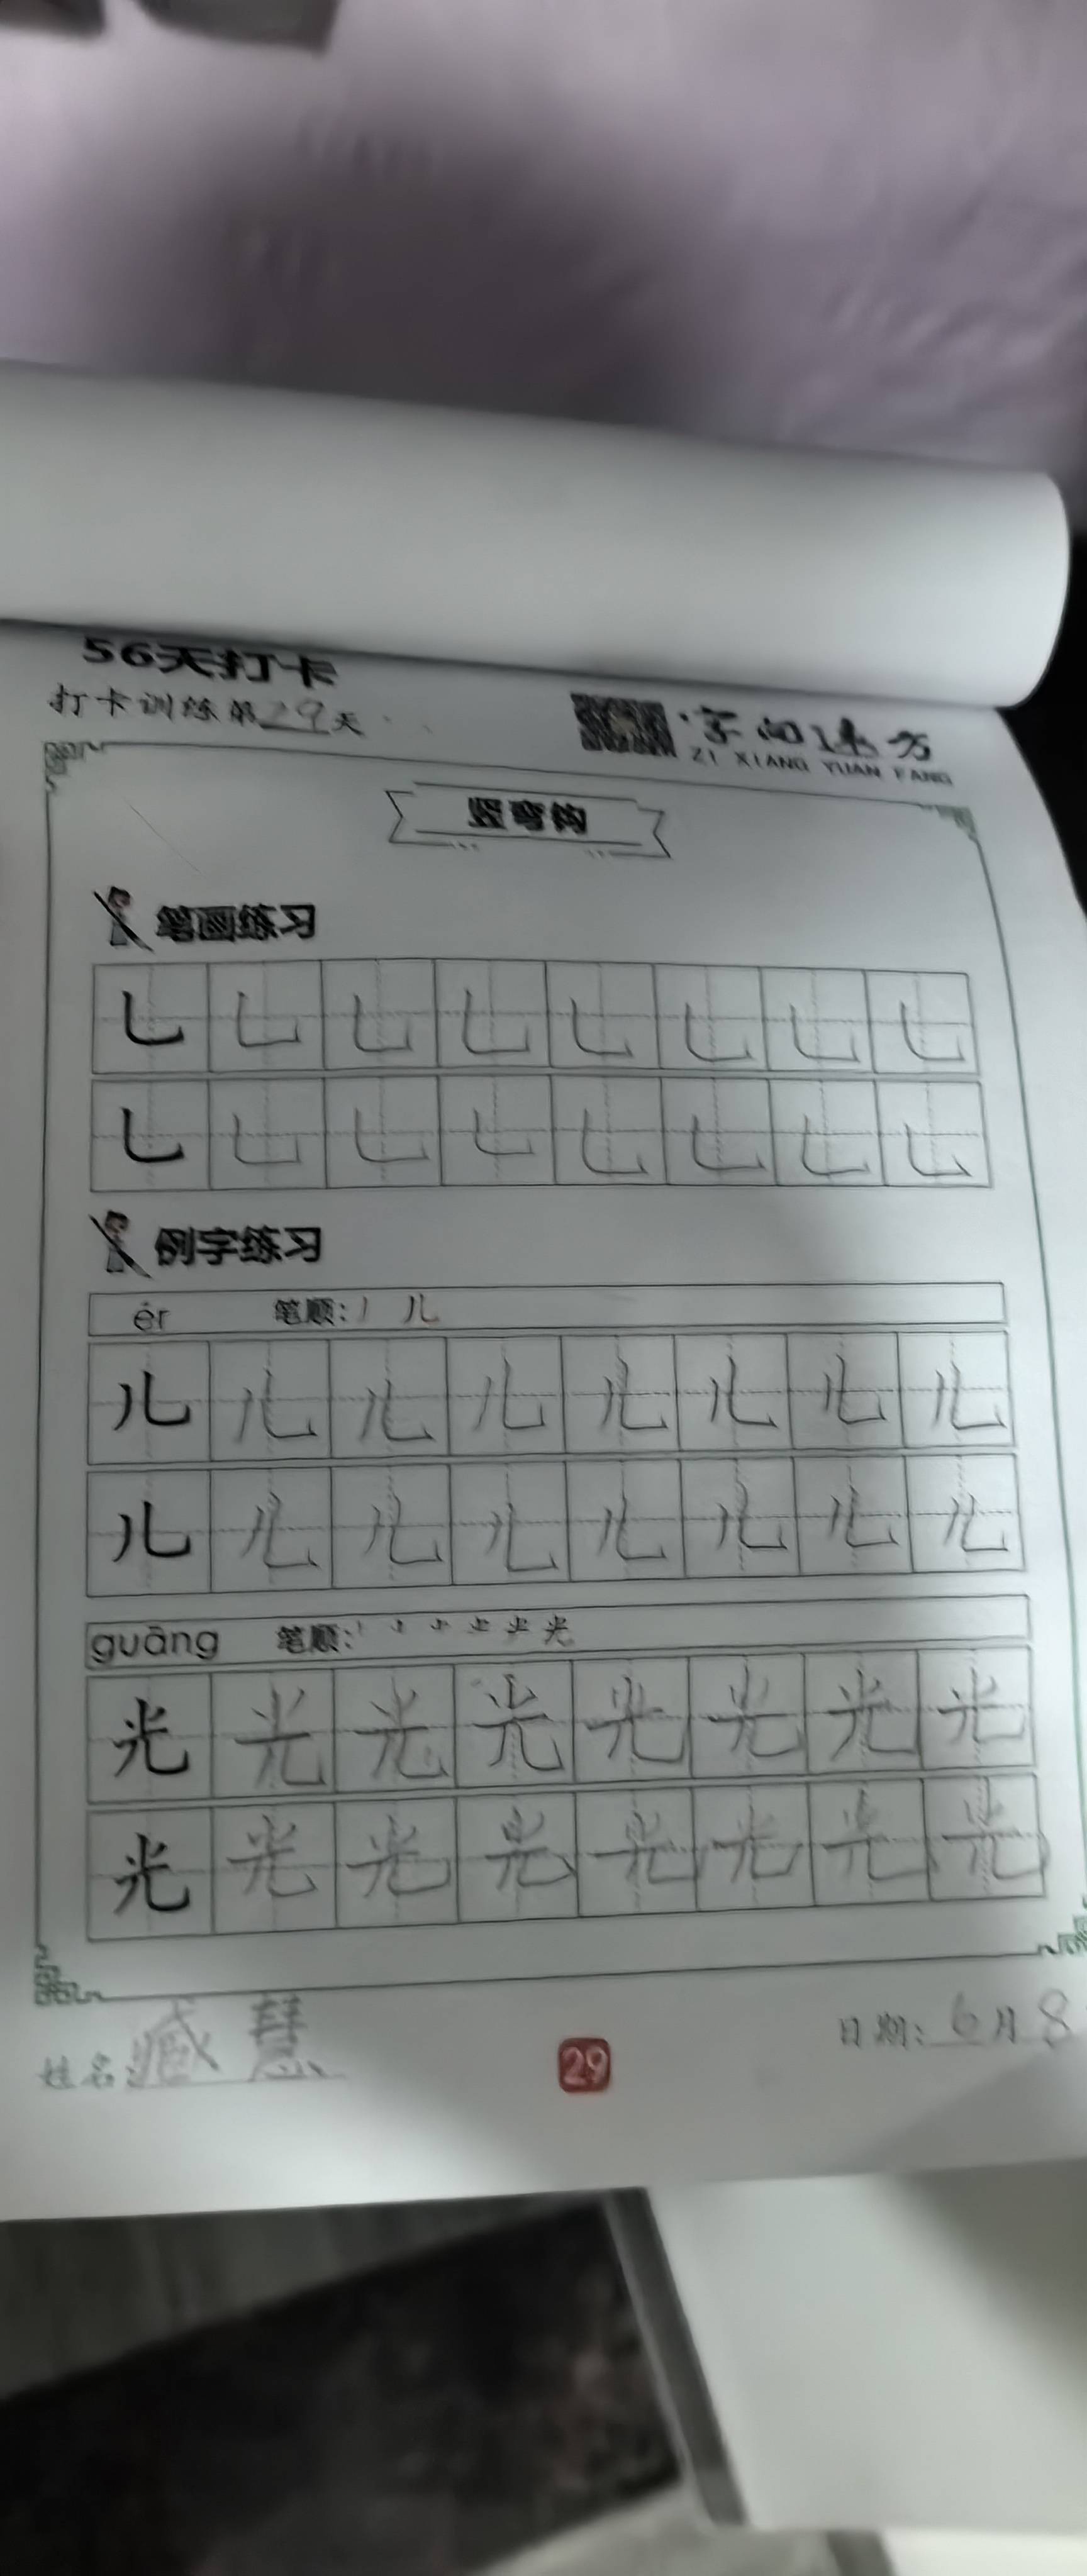 56天打卡
打卡训练第29天
字向远方
ZI XIANG YUAN FANG
竖弯钩
笔画练习
乚 乚 乚 乚 乚 乚 乚 乚
乚 乚 乚 乚 乚 乚 乚 乚
例字练习
ér 笔顺: 丿 儿
儿 儿 儿 儿 儿 儿 儿 儿
儿 儿 儿 儿 儿 儿 儿 儿
guāng 笔顺:
光 光 光 光 光 光 光 光
光 光 光 光 光 光 光 光
姓名: 臧慧
29
日期: 6月8